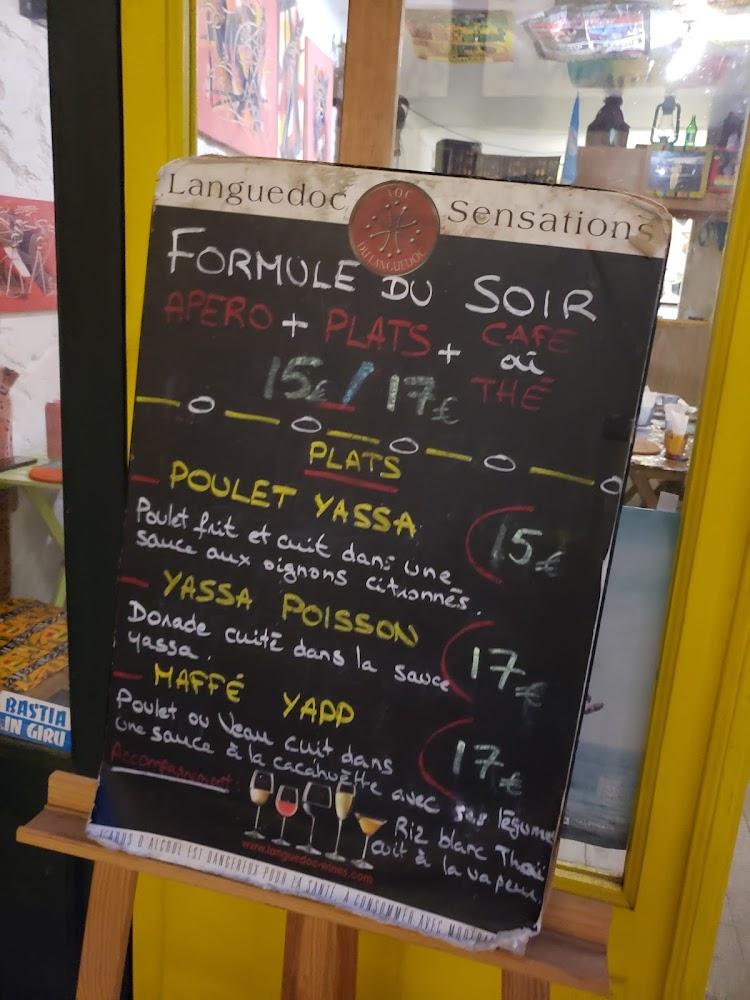 Languedoc Sensations
AOC
DU LANGUEDOC
FORMULE DU SOIR
APERO + PLATS + CAFE
oú
THÉ
15€ / 17€
PLATS
POULET YASSA
15€
Poulet frit et cuit dans une
sauce aux oignons citronnés.
YASSA POISSON
17€
Dorade cuite dans la sauce
yassa.
MAFFÉ YAPP
17€
Poulet ou Veau cuit dans
une sauce à la cacahuètte avec ses légumes
Accompagnement:
Riz blanc Thaï
cuit à la vapeur.
www.languedoc-wines.com
L'ABUS D'ALCOOL EST DANGEREUX POUR LA SANTÉ A CONSOMMER AVEC
BASTIA
IN GIRU